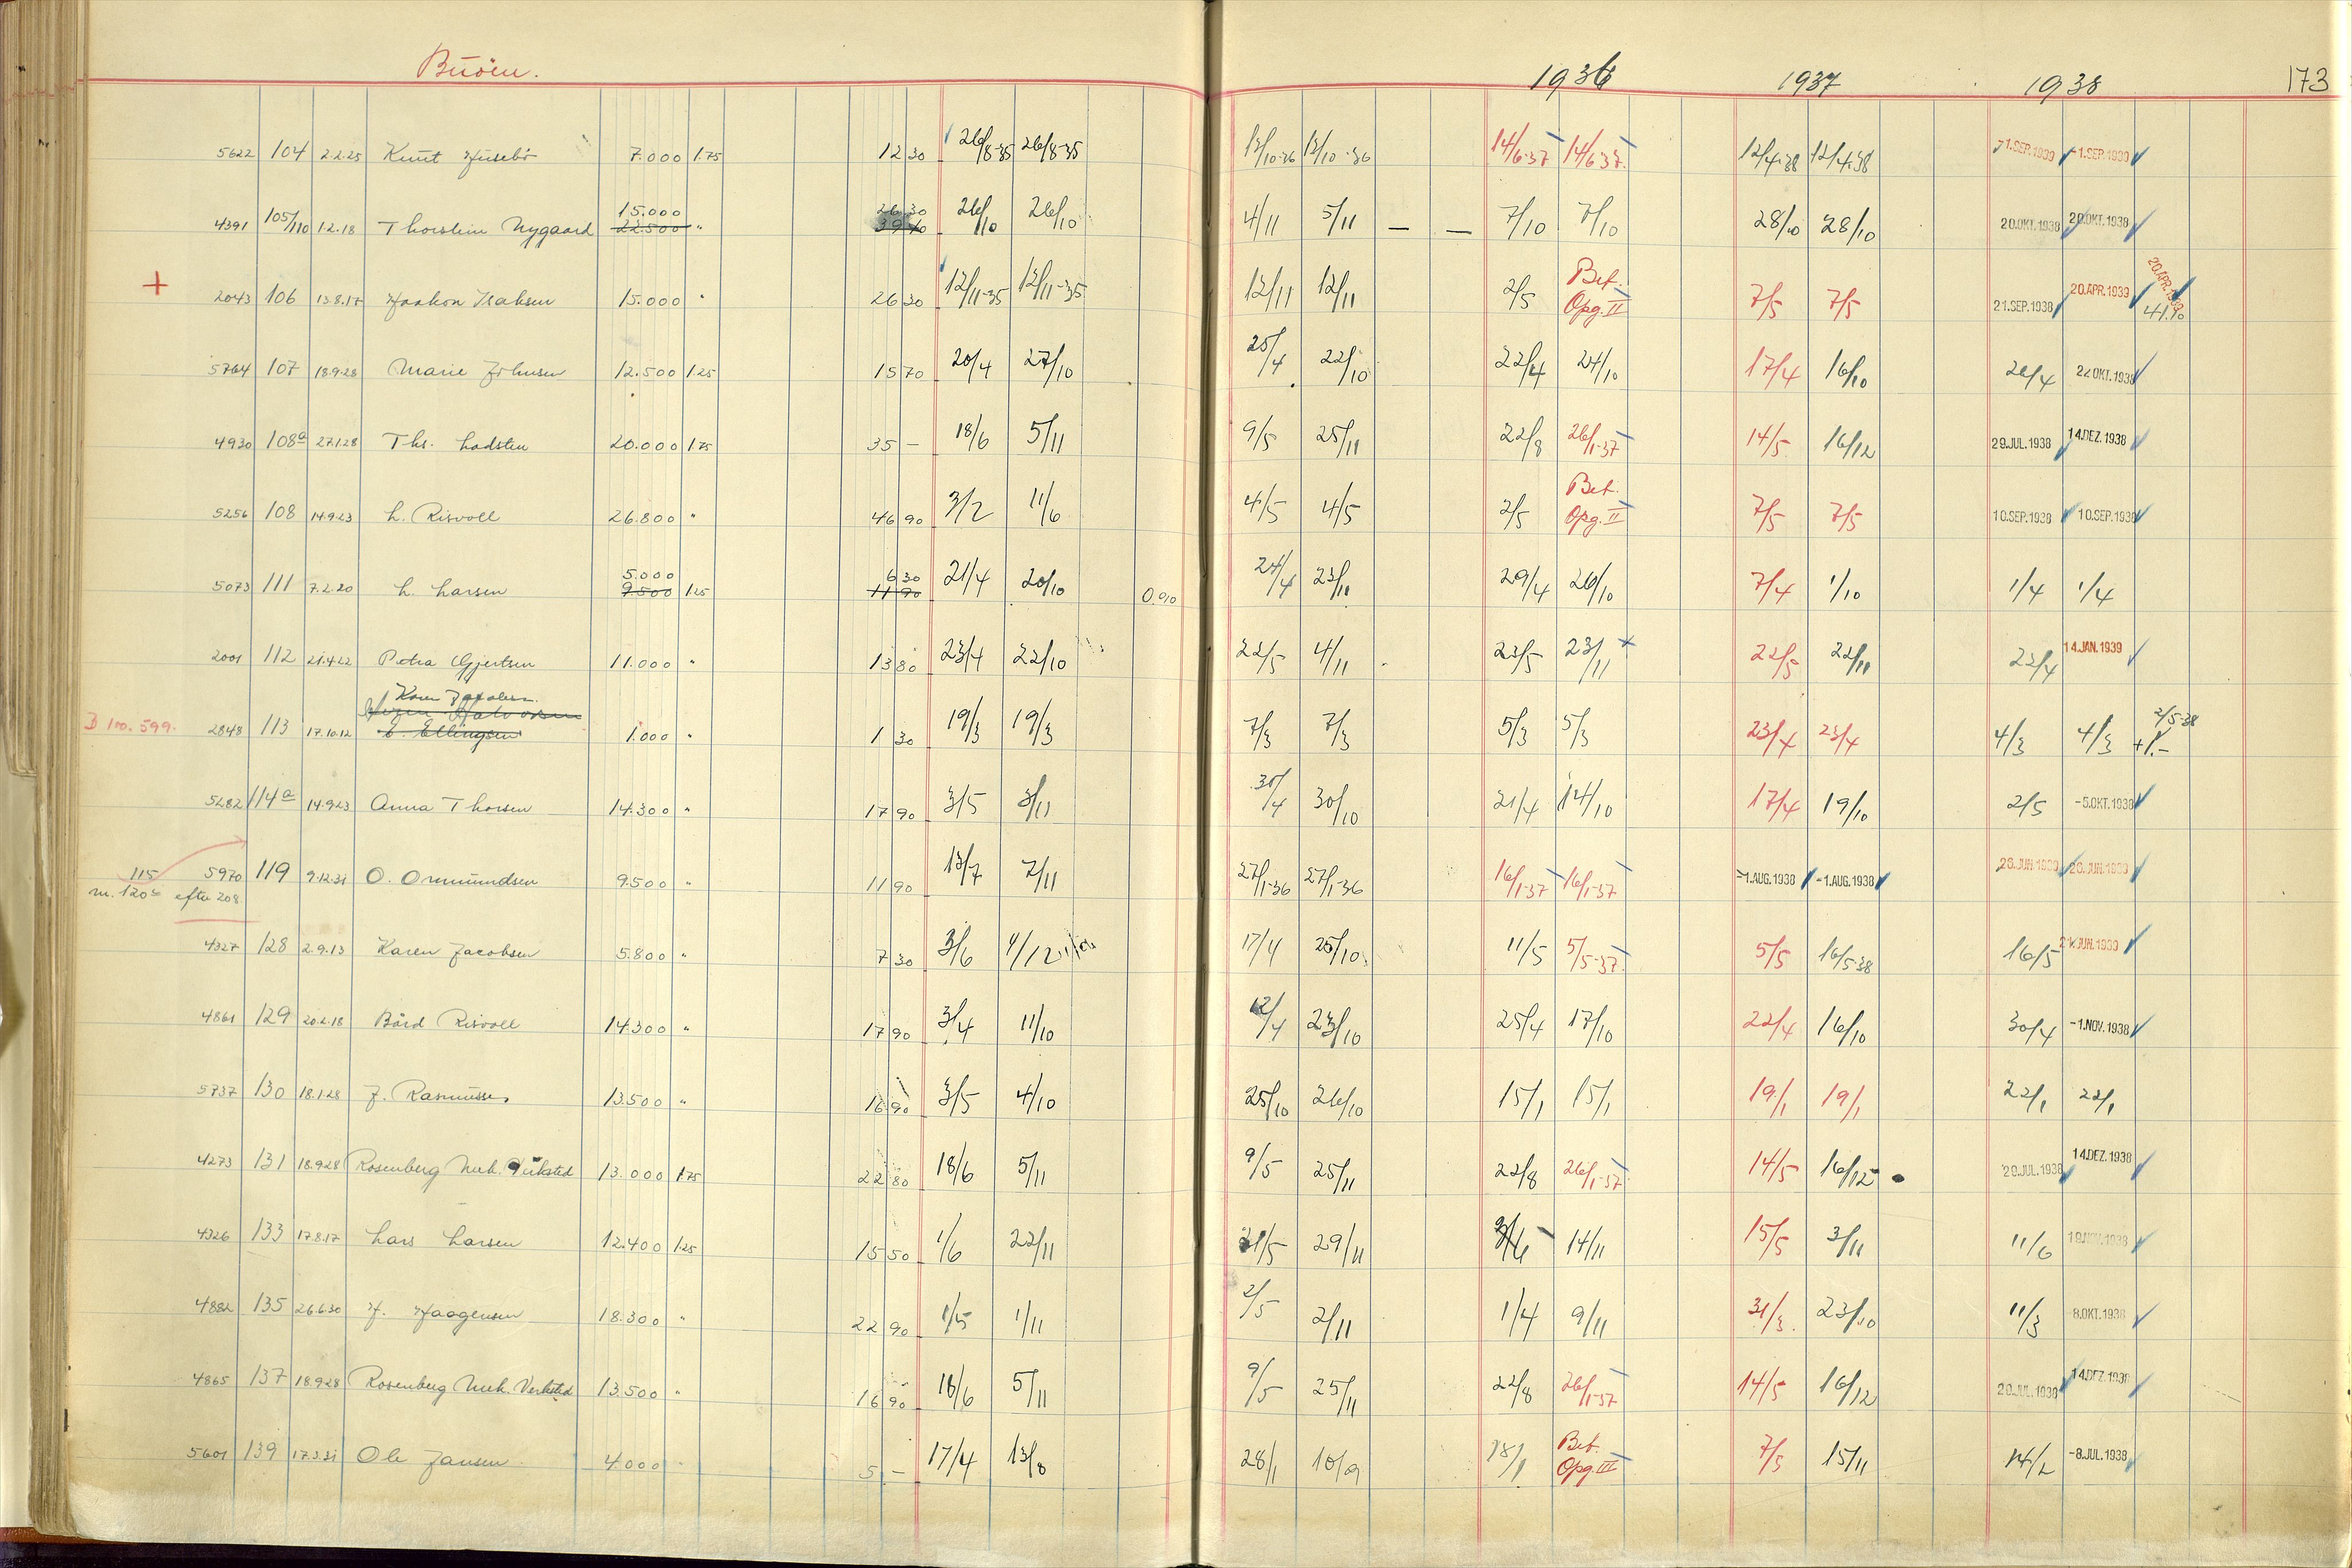 Buöen. 1936 1937 1938 173
5622 104 2.2.25 Knut Husebö 7.000 1.75 12 30 26/8-35 26/8-35 13/10-36 13/10-36 14/6-37 14/6-37 12/4-38 12/4-38 -1.SEP.1939 -1.SEP.1939
15.000 26 30
4391 105/110 1.2.18 Thorstein Nygaard 22.500 " 39 40 26/10 26/10 4/11 5/11 — — 7/10 7/10 28/10 28/10 20.OKT.1938 20.OKT.1938
+ 2043 106 13.8.17 Haakon Isaksen 15.000 " 26 30 12/11-35 12/11-35 12/11 12/11 2/5 Bet. Opg. II 7/5 7/5 21.SEP.1938 20.APR.1939 20.APR.1939 41.10
5764 107 18.9.28 Marie Johnsen 12.500 1.25 15 70 20/4 27/10 25/4 22/10 22/4 24/10 17/4 16/10 26/4 22.OKT.1938
4930 108a 27.1.28 Ths. Lodsten 20.000 1.75 35 — 18/6 5/11 9/5 25/11 22/8 26/1-37 14/5 16/12 29.JUL.1938 14.DEZ.1938
5256 108 14.9.23 L. Risvoll 26.800 " 46 90 3/2 11/6 4/5 4/5 2/5 Bet. Opg. II 7/5 7/5 10.SEP.1938 10.SEP.1938
5.000 6 30
5073 111 7.2.20 L. Larsen 9.500 1.25 11 90 21/4 20/10 0.90 24/4 23/10 29/4 26/10 7/4 1/10 1/4 1/4
2001 112 21.4.22 Petra Gjertsen 11.000 " 13 80 23/4 22/10 22/5 4/11 23/5 23/11 22/5 22/11 23/4 14.JAN.1939
Karen Jacobsen
B no. 599. 2848 113 17.10.12 E. Ellingsen 1.000 " 1 30 19/3 19/3 7/3 7/3 5/3 5/3 23/4 23/4 4/3 4/3 2/5-38 +1.-
5282 114a 14.9.23 Anna Thorsen 14.300 " 17 90 3/5 3/11 30/4 30/10 21/4 14/10 17/4 19/10 2/5 -5.OKT.1938
115 5970 119 9.12.31 O. Ommundsen 9.500 " 11 90 13/7 7/11 27/1-36 27/1-36 16/1-37 16/1-37 -1.AUG.1938 -1.AUG.1938 26.JUN.1939 26.JUN.1939
m. 120c efter 208
4327 128 2.9.13 Karen Jacobsen 5.800 " 7 30 3/6 4/12 17/4 25/10 11/5 5/5-37 5/5 16/5-38 16/5 21.JUN.1939
4861 129 20.2.18 Bård Risvoll 14.300 " 17 90 3/4 11/10 12/4 23/10 25/4 17/10 22/4 16/10 30/4 -1.NOV.1938
5737 130 18.1.28 J. Rasmussen 13.500 " 16 90 3/5 4/10 25/10 26/10 15/1 15/1 19/1 19/1 22/1 22/1
4273 131 18.9.28 Rosenberg Mek. Verksted 13.000 1.75 22 80 18/6 5/11 9/5 25/11 22/8 26/1-37 14/5 16/12 29.JUL.1938 14.DEZ.1938
4326 133 17.8.17 Lars Larsen 12.400 1.25 15 50 1/6 22/11 21/5 29/11 14/11 15/5 3/11 11/6 19.NOV.1938
4882 135 26.6.30 H. Haagensen 18.300 " 22 90 1/5 1/11 2/5 2/11 1/4 9/11 31/3 23/10 11/3 -8.OKT.1938
4865 137 18.9.28 Rosenberg Mek. Verksted 13.500 " 16 90 18/6 5/11 9/5 25/11 22/8 26/1-37 14/5 16/12 29.JUL.1938 14.DEZ.1938
5601 139 17.3.31 Ole Jansen 4.000 " 5 — 17/4 13/8 28/1 10/9 18/1 Bet. Opg. III 7/5 15/11 14/2 -8.JUL.1938